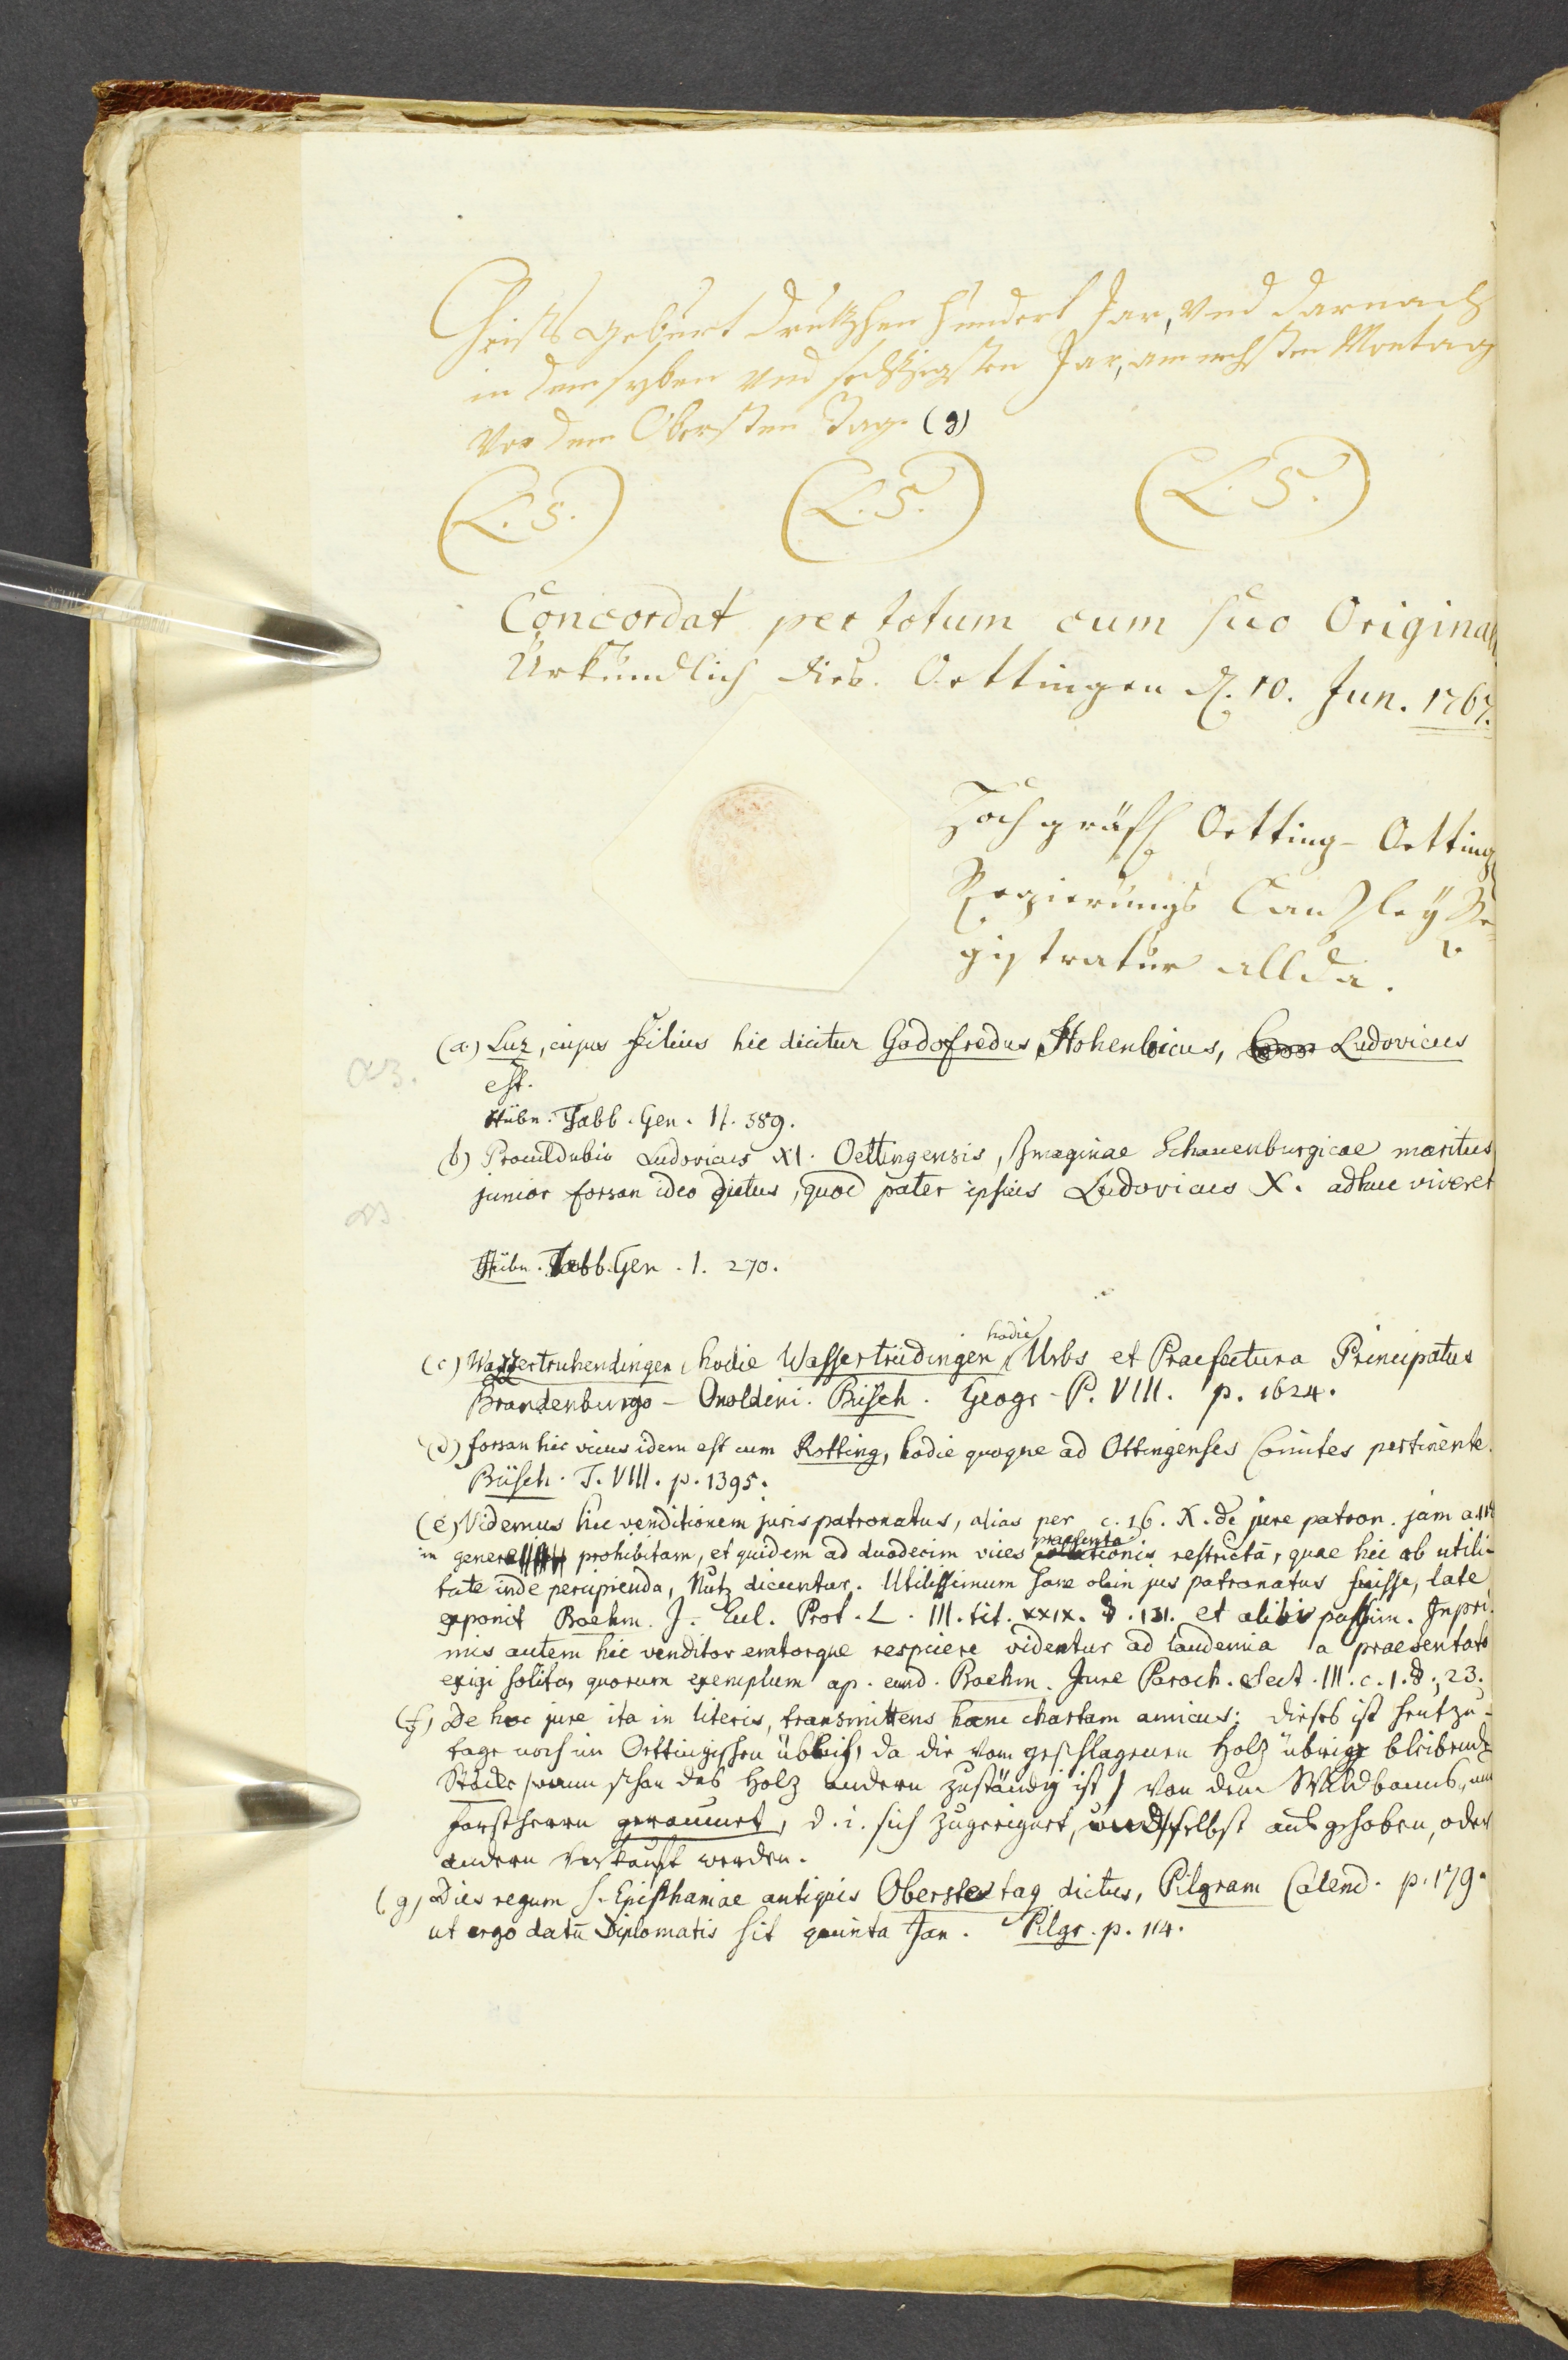 Christs geburt dreutzhen hundert Jar, vnd darnach
in dem syben vnd sechtzigsten Jar, am nehsten Montag
Vor dem Obersten Tag. (g)
(L. S.) (L. S.) (L. S.)
Concordat per totum cum suo Original
Urkundlich dies. Oettingen d. 10. Jun. 1767.
Hochgräfl Oetting-Oetting
Regierungs Canzley Re-
gistratur allda.
(a) Luz, cujus filius hic dicitur Godofredus Hohenloicus, Ludovicus
est.
Hübn. Tabb. Gen. II. 589.
(b) Proculdubio Ludovicus XI. Oettingensis, Imaginae Schauenburgicae maritus
junior forsan ideo dictus, quod pater ipsius Ludovicus X. adhuc viveret
Hübn. Tabb. Gen. I. 270.
(c) Wazzertruhendingen, hodie Wassertrüdingen, hodie Urbs et Praefectura Principatus
Brandenburgo-Onoldini. Büsch. Geogr. P. VIII. p. 1624.
(d) forsan hic vicus idem est cum Rotting, hodie quoque ad Ottingenses Comites pertinente.
Büsch. T. VIII. p. 1395.
(e) Videmus hic venditionem juris patronatus, alias per c. 16. X. de jure patron. jam
in genere prohibitam, et quidem ad duodecim vices praesentationis restrictā, quae hic ob utili-
tate inde percipienda, Nutz dicuntur. Utilissimum sane olim jus patronatus fuisse, late
exponit Boehm. J. Eul. Prot. L. III. tit. XXIX. §. 131. et alibi passim. Inpri-
mis autem hic venditor emtorque respicere videntur ad laudemia a praesentato
exigi solita, quorum exemplum ap. eund. Boehm. Jure Paroch. Sect. III. c. 1. §. 23.
(f) De hoc jure ita in literis, transmittens hanc chartam amicus: dieses ist heutzu-
tage noch im Oettingischen üblich, da die vom geschlagenen Holz übrige bleibende
Stöcke /wann schon das Holz andern zuständig ist/ von dem Wildbanns, und
forstherrn geraumet, d. i. sich zugeeignet, und selbst ausgehoben, oder
andern verkauft werden.
(g) Dies regum s. Epiphaniae antiquis Oberstertag dictus, Pilgram Calend. p. 179.
ut ergo datū Diplomatis sit quinta Jan. Pilgr. p. 114.